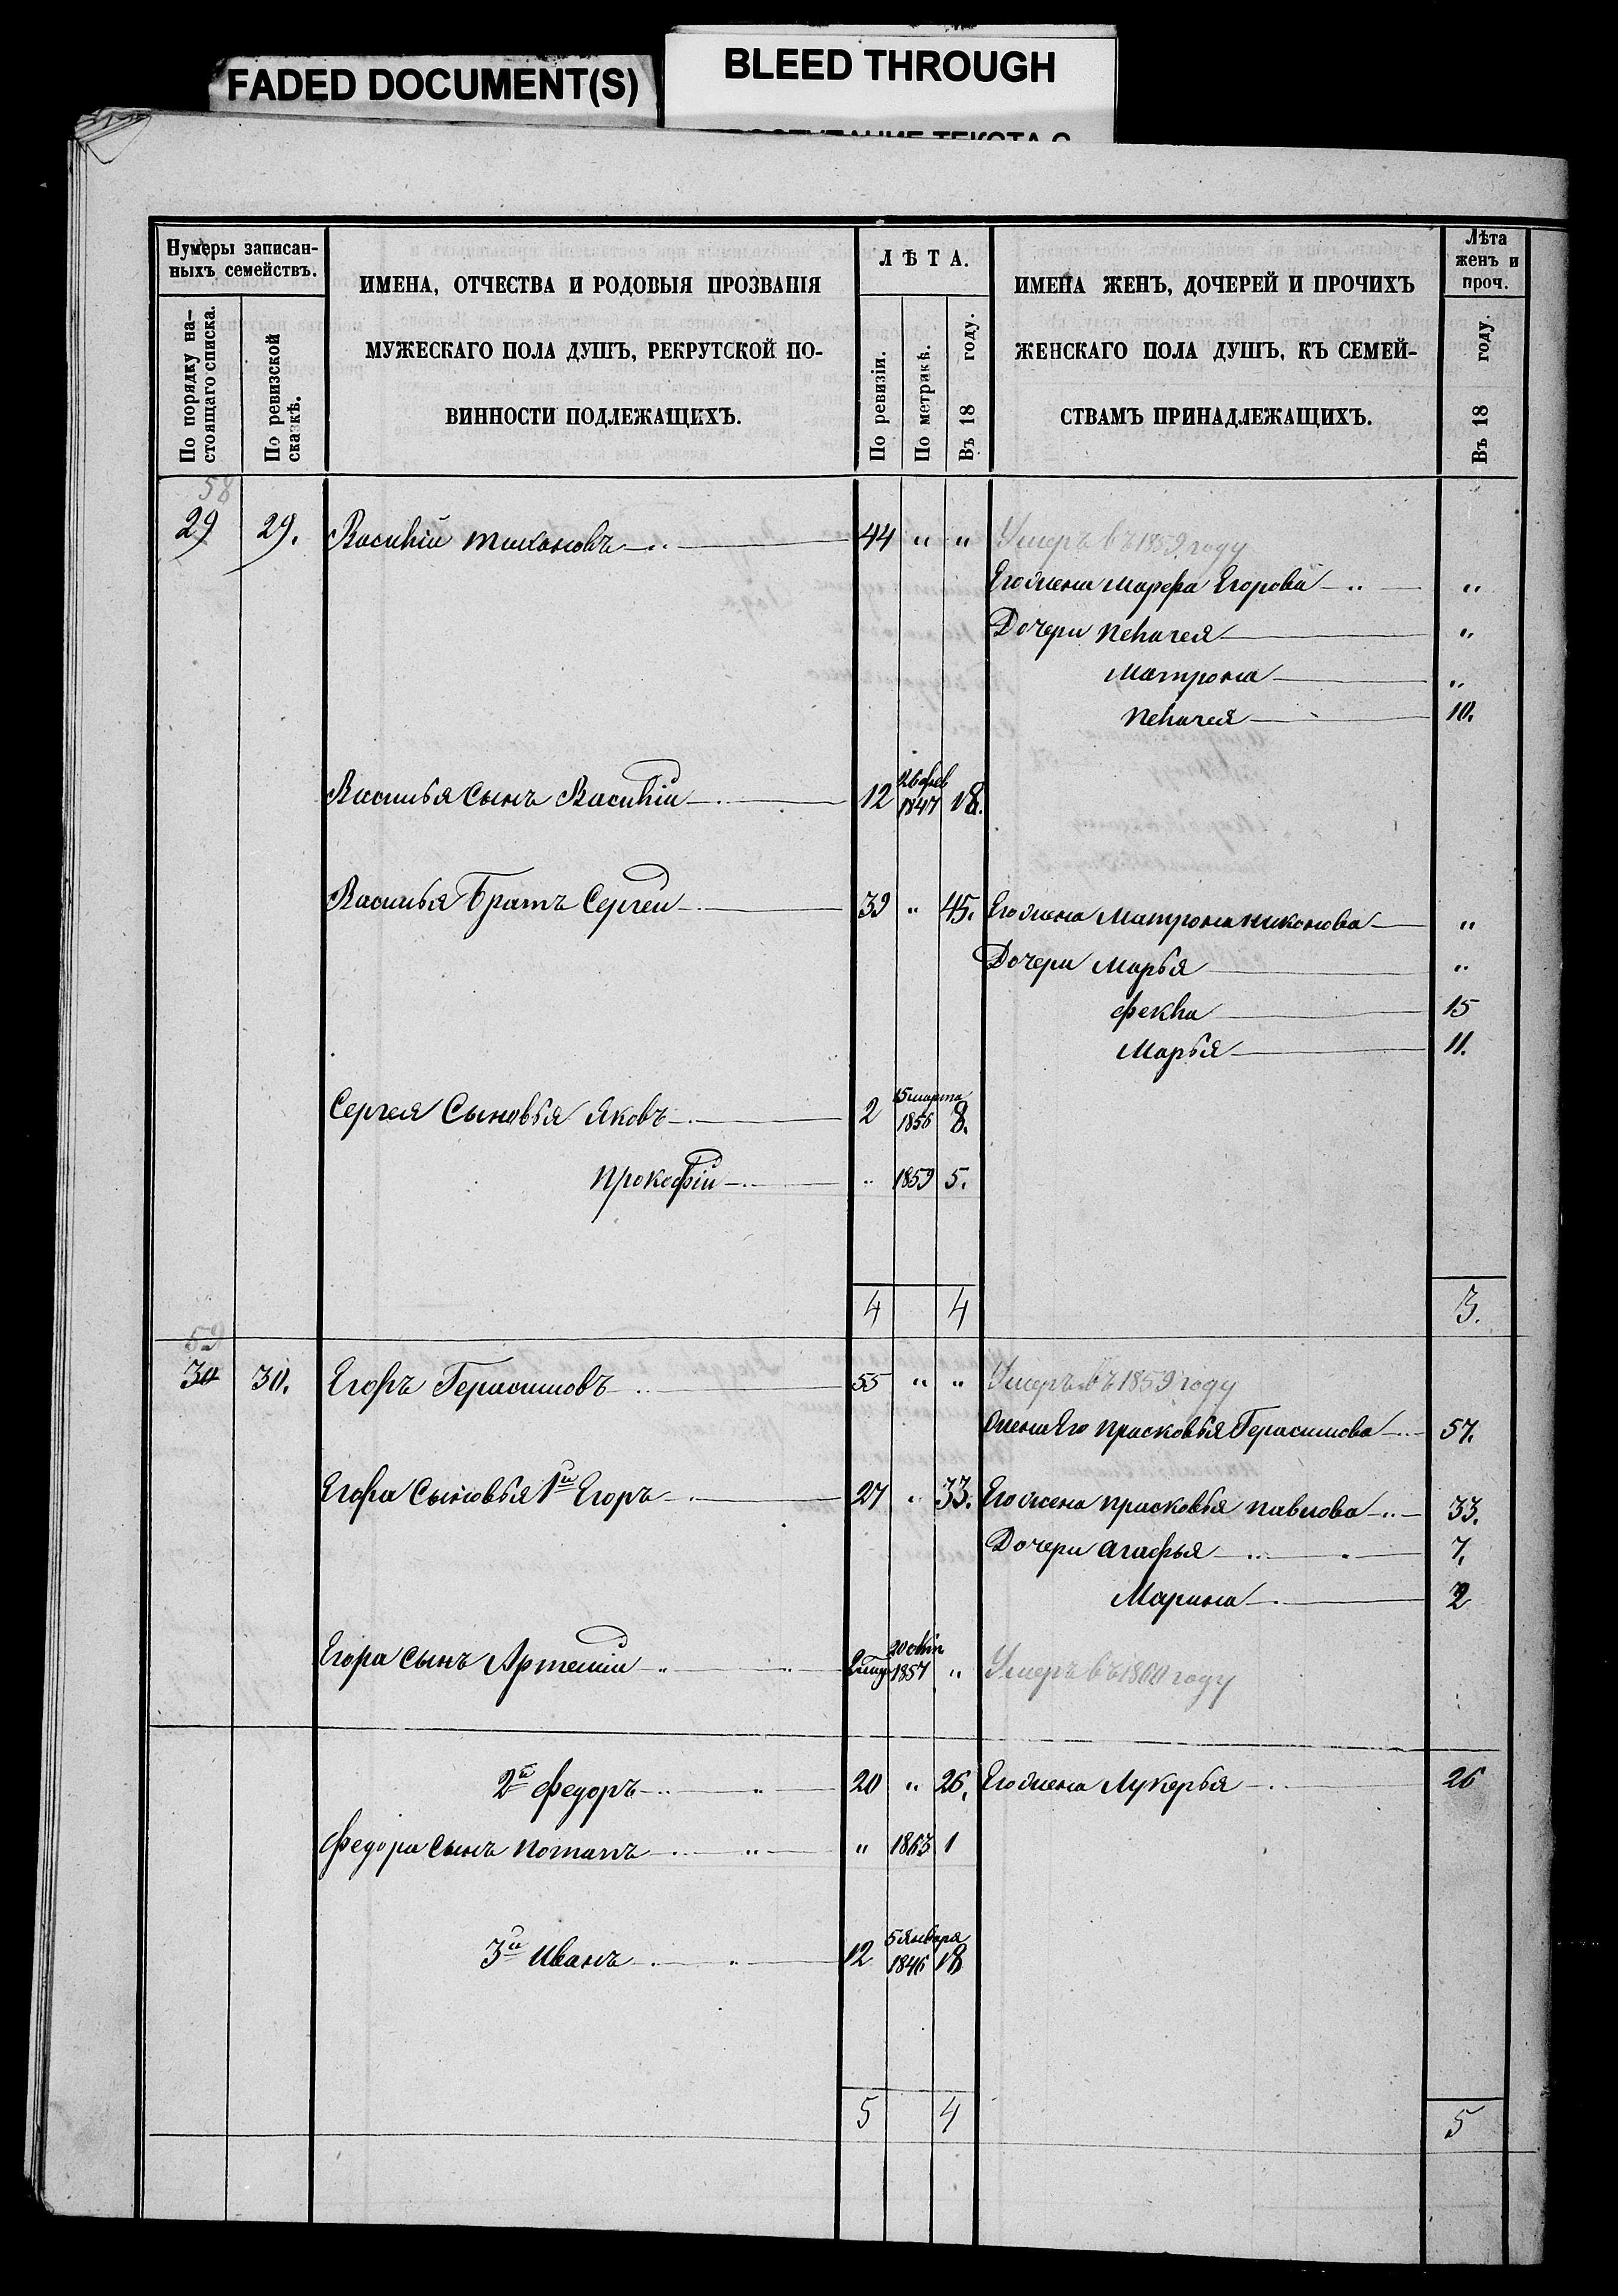 FADED DOCUMENT(S)
BLEED THROUGH
Нумеры записан-
ныхъ семействъ.
По порядку на-
стоящаго списка.
По ревизской
сказкѣ.
ИМЕНА, ОТЧЕСТВА И РОДОВЫЯ ПРОЗВАНІЯ
МУЖЕСКАГО ПОЛА ДУШЪ, РЕКРУТСКОЙ ПО-
ВИННОСТИ ПОДЛЕЖАЩИХЪ.
ЛѢТА.
По ревизіи.
По метрикѣ.
Въ 18 году.
ИМЕНА ЖЕНЪ, ДОЧЕРЕЙ И ПРОЧИХЪ
ЖЕНСКАГО ПОЛА ДУШЪ, КЪ СЕМЕЙ-
СТВАМЪ ПРИНАДЛЕЖАЩИХЪ.
Лѣта
женъ и
проч.
Въ 18 году.
58
29 29. Василій 44 " " Умеръ въ 1859 году
Его жена Марфа Егорова "
Дочери Пелагея "
Матрона "
Пелагея 10.
Василья Сынъ Василій 12 26 фев 1847 18.
Василья Братъ Сергей 39 " 45. Его жена Матрона Никонова "
Дочери Марья "
Фекла 15
Марья 11.
Сергея Сыновья Яковъ 2 15 марта 1856 8.
Прокофій " 1859 5.
4 4 3.
59
30 30. Егоръ Герасимовъ 55 " " Умеръ въ 1859 году
Жена Его Прасковья Герасимова 57.
Егора Сыновья 1й Егоръ 27 " 33. Его жена Прасковья Павлова 33.
Дочери Агафья 7.
Марина 2
Егора сынъ Артемій 1857 " Умеръ въ 1860 году
2й Федоръ 20 " 26. Его жена Лукерья 26
Федора сынъ Потапъ " 1863 1
3й Иванъ 12 5 Января 1846 18
5 4 5